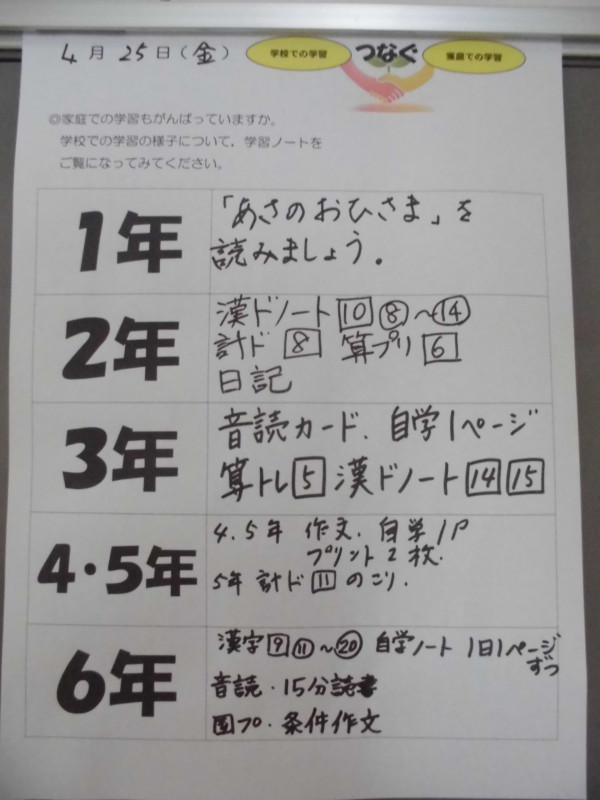 4月25日(金)
学校での学習
つなぐ
家庭での学習
◎家庭での学習もがんばっていますか。
学校での学習の様子について，学習ノートを
ご覧になってみてください。
1年
「あさのおひさま」を
読みましょう。
2年
漢ドノート 10 ⑧〜⑭
計ド 8 算プリ 6
日記
3年
音読カード、自学1ページ
算トレ 5 漢ドノート 14 15
4・5年
4、5年 作文、自学1P
プリント2枚.
5年 計ド 11 のこり.
6年
漢字 9 ⑪〜⑳ 自学ノート 1日1ページ
ずつ
音読・15分読書
国プ・条件作文